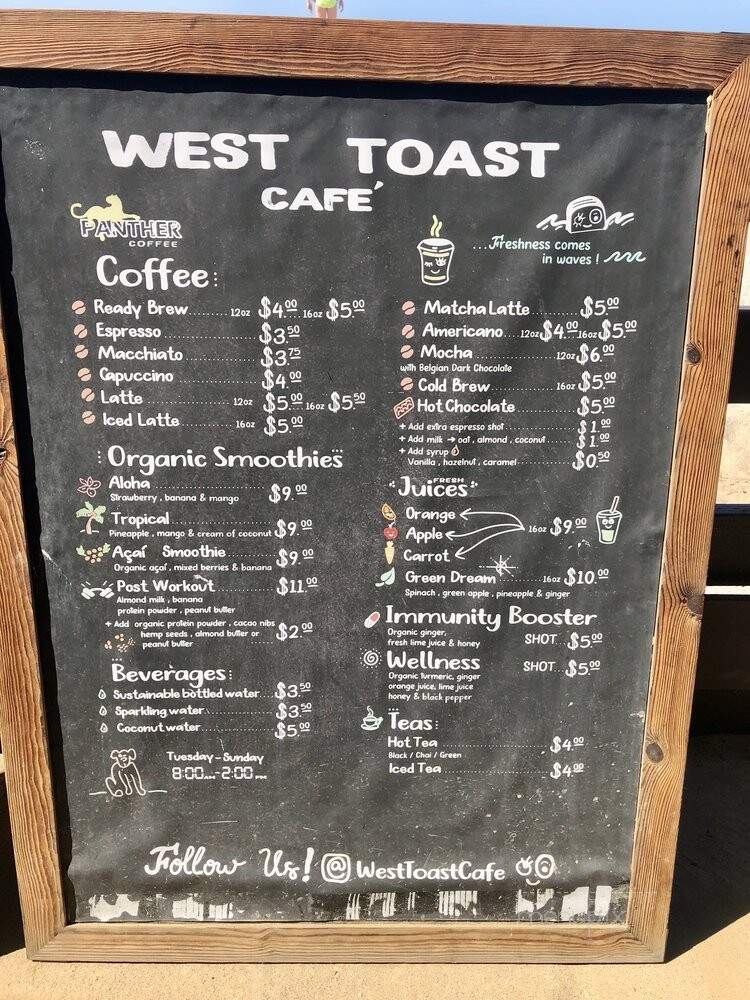 WEST TOAST
CAFE´
PANTHER
COFFEE
Coffee:
Ready Brew........ 12oz $4.00 16oz $5.00
Espresso $3.50
Macchiato $3.75
Capuccino $4.00
Latte 12oz $5.00 16oz $5.50
Iced Latte 16oz $5.00
Organic Smoothies
Aloha $9.00
Strawberry, banana & mango
Tropical $9.00
Pineapple, mango & cream of coconut
Açaí Smoothie $9.00
Organic açaí, mixed berries & banana
Post Workout $11.00
Almond milk, banana
protein powder, peanut butter
+ Add organic protein powder, cacao nibs
hemp seeds, almond butter or $2.00
peanut butter
Beverages:
Sustainable bottled water... $3.50
Sparkling water $3.50
Coconut water $5.00
Tuesday - Sunday
8:00am-2:00pm
...Freshness comes
in waves!
Matcha Latte $5.00
Americano.... 12oz $4.00 16oz $5.00
Mocha 12oz $6.00
with Belgian Dark Chocolate
Cold Brew 16oz $5.00
Hot Chocolate $5.00
+ Add extra espresso shot $1.00
+ Add milk → oat, almond, coconut $1.00
+ Add syrup
Vanilla, hazelnut, caramel $0.50
FRESH
Juices
Orange
Apple 16oz $9.00
Carrot
Green Dream 16oz $10.00
Spinach, green apple, pineapple & ginger
Immunity Booster
Organic ginger,
fresh lime juice & honey SHOT $5.00
Wellness SHOT $5.00
Organic Turmeric, ginger
orange juice, lime juice
honey & black pepper
Teas:
Hot Tea $4.00
Black / Chai / Green
Iced Tea $4.00
Follow Us! @WestToastCafe